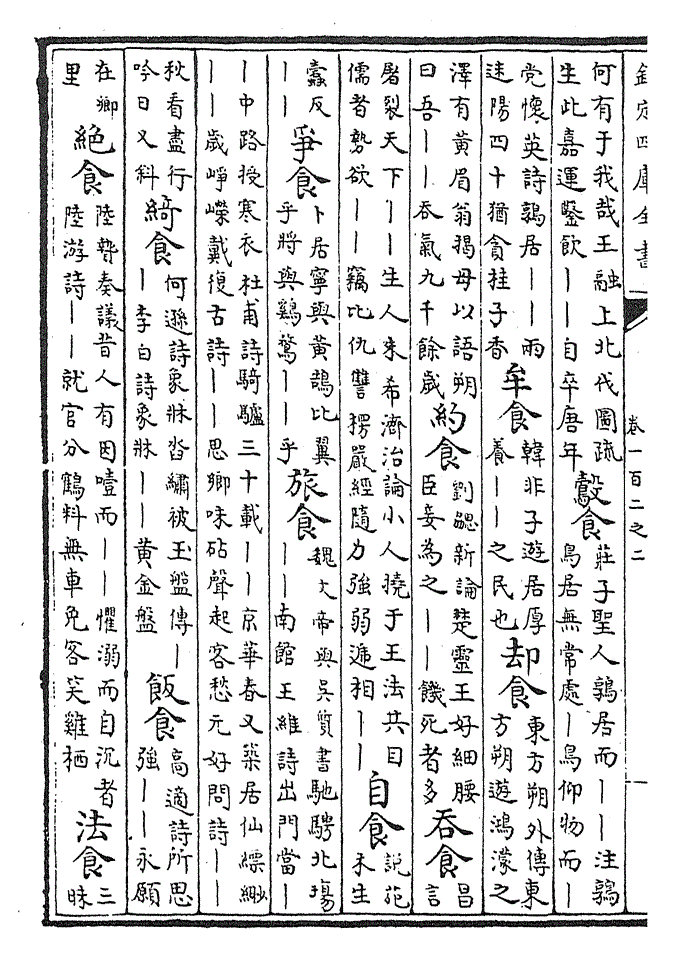 欽定四庫全書 卷一百二之二
何有于我哉王融上北伐圖疏
生此嘉運鑿飲——自卒唐年
鷇食
莊子聖人鶉居而——注鶉
鳥居無常處—鳥仰物而—
党懷英詩鶉居——雨
速陽四十猶貪挂子香
牟食
韓非子遊居厚
養——之民也
却食
東方朔外傳東
方朔遊鴻濛之
澤有黄眉翁揭母以語朔
曰吾——吞氣九千餘歲
約食
劉勰新論楚靈王好細腰
臣妾為之——餓死者多
吞食
昌
言
屠裂天下——生人朱希濟治論小人撓于王法共目
儒者勢欲——竊比仇讐楞嚴經隨力強弱遞相——
自食
説苑
禾生
蠹反
——
爭食
卜居寧與黄鵠比翼
乎將與鷄鶩——乎
旅食
魏文帝與吳質書馳騁北塲
——南館王維詩出門當—
—中路授寒衣杜甫詩騎驢三十載——京華春又築居仙縹緲
——歲崢嶸戴復古詩——思鄉味砧聲起客愁元好問詩——
秋看盡行
吟日又斜
綺食
何遜詩象牀沓繡被玉盤傳—
—李白詩象牀——黄金盤
飯食
高適詩所思
強——永願
在鄉
里
絶食
陸贄奏議昔人有因噎而——懼溺而自沉者
陸游詩——就官分鶴料無車免客笑雞栖
法食
三
昧